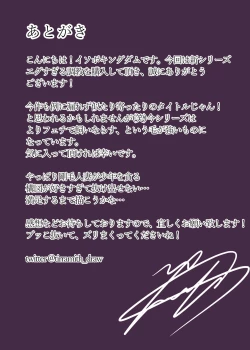 あとがき
こんにちは！イソボキングダムです。今回は新シリーズ
エグすぎる調教を購入して頂き、誠にありがとう
ございます！
今作も例に漏れず似たり寄ったりのタイトルじゃん！
と思われるかもしれませんが今シリーズは
よりフェチで
なっています。
気に入って頂ければ幸いです。
やっぱり剛毛人妻が少年を貪る
構図が好きすぎて抜け出せない…
満足するまで描こうかな…
感想などお待ちしておりますので、宜しくお願い致します！
ブッこ抜いて、ズリまくってくださいね！